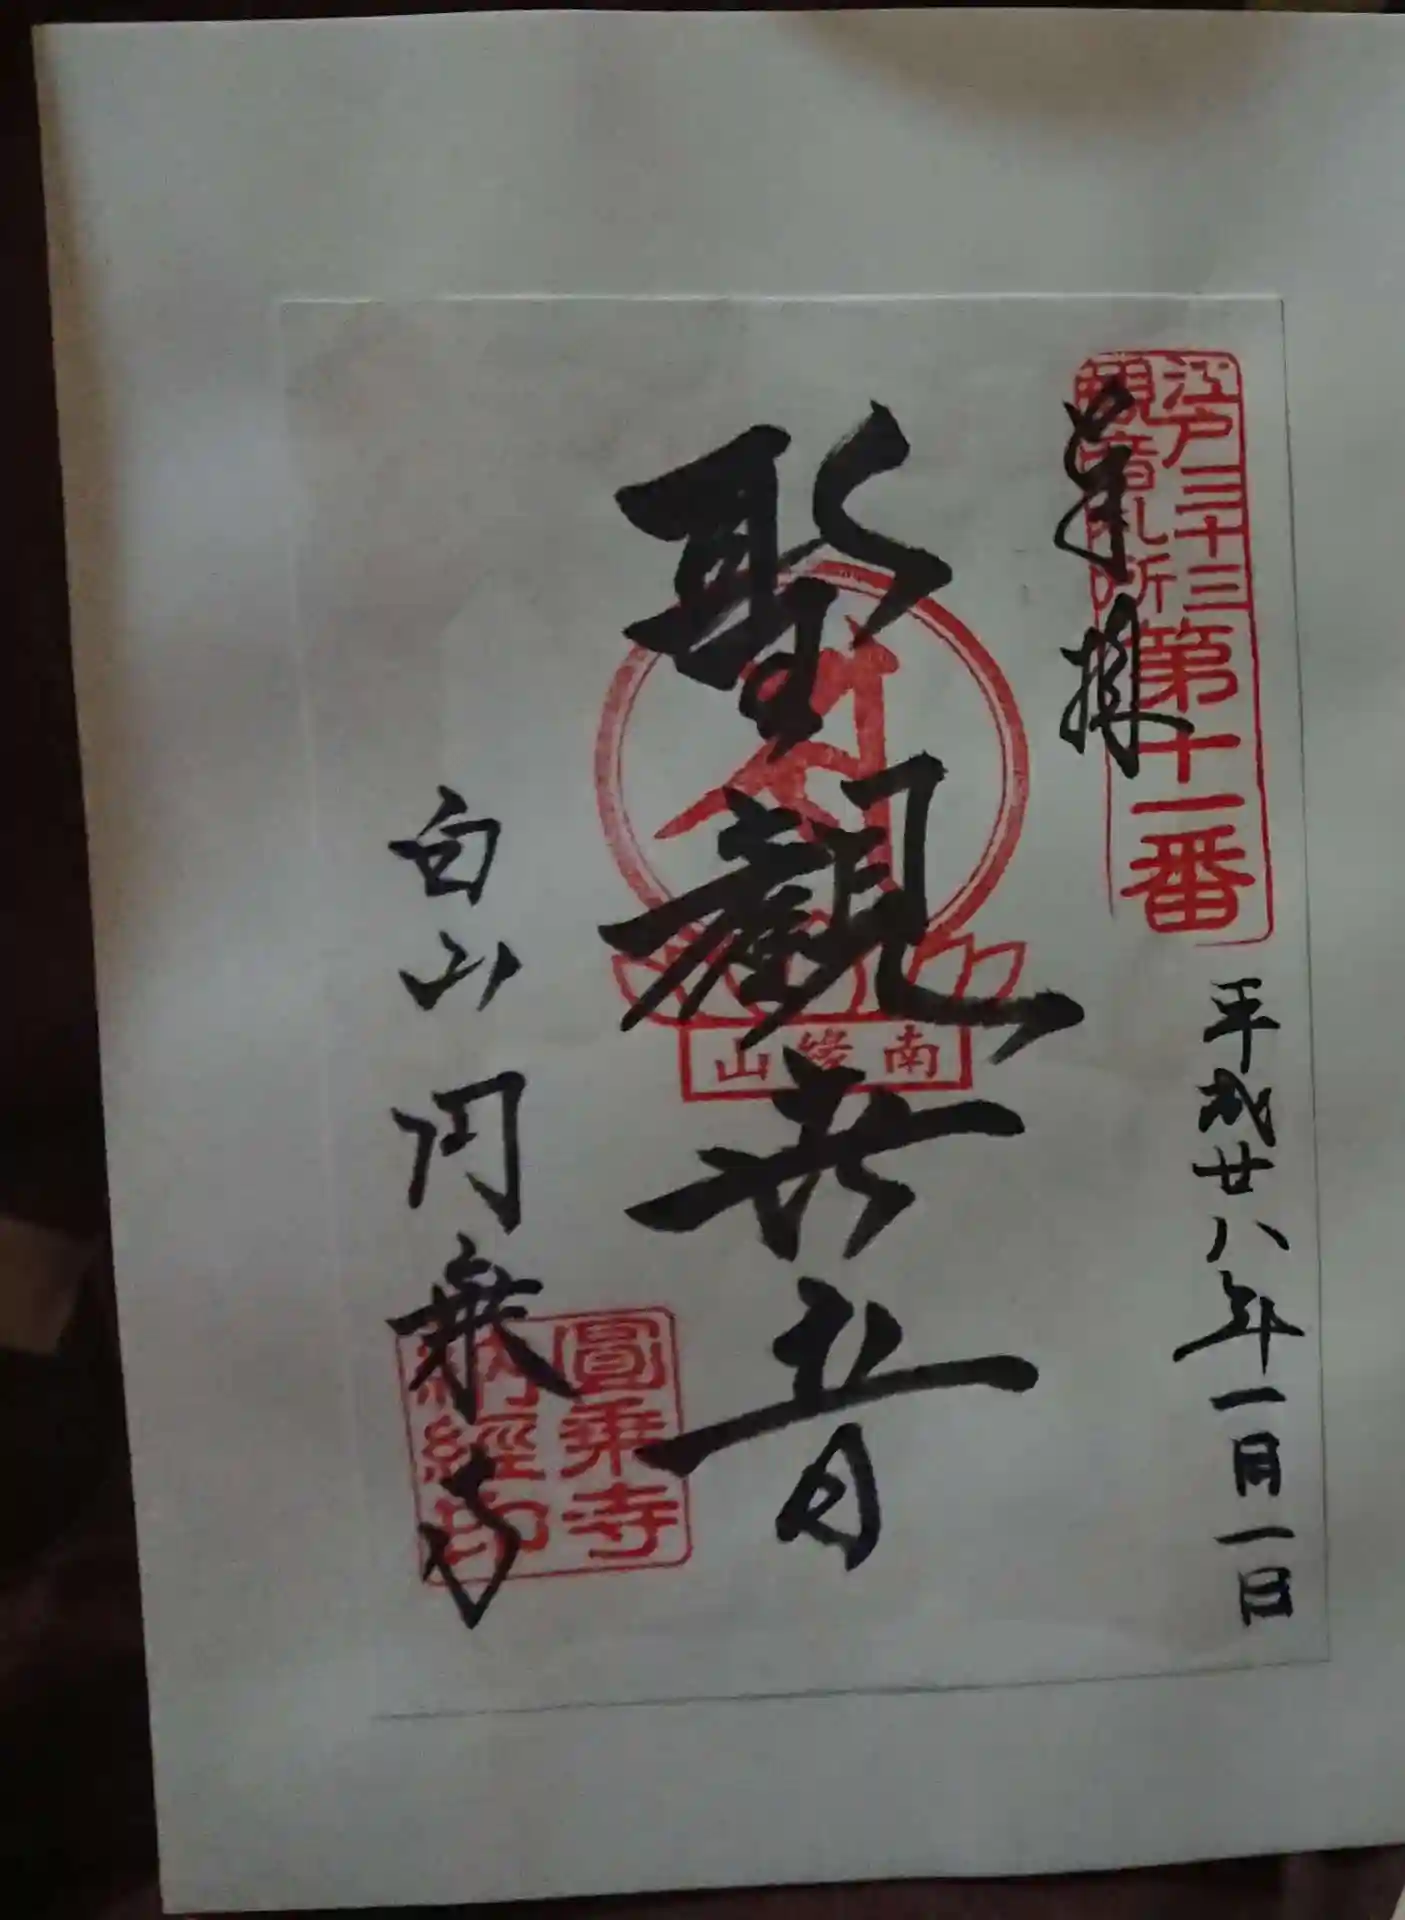 江戸三十三
観音札所
第十一番
奉拝
平成廿八年一月一日
聖観世音
南縁山
白山円乗寺
圓乗寺
納経印